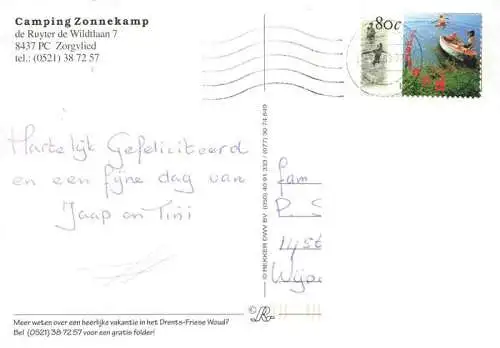 Camping Zonnekamp
de Ruyter de Wildtlaan 7
8437 PC Zorgvlied
tel.: (0521) 38 72 57
80c
Hartelijk Gefeliciteerd
en een fijne dag van
Jaap en Tini
© REKKER DVW BV. (050) 40 91 333 / (077) 30 74 649
fam
P. S
1456
Wijd
Meer weten over een heerlijke vakantie in het Drents-Friese Woud?
Bel (0521) 38 72 57 voor een gratis folder!